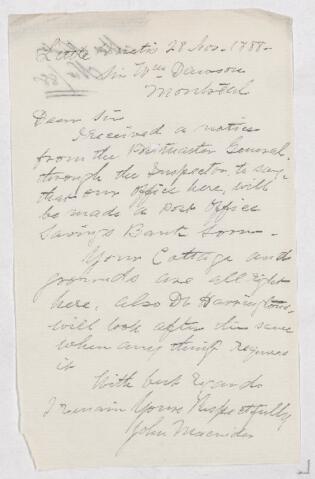 Little Metis 28 Nov. 1888 -
Sir Wm Dawson
Montreal
Dear Sir
I received a notice
from the Postmaster General.
through the Inspector, to say
that our office here, will
be made a Post Office
Savings Bank soon -
Your Cottage and
grounds are all right
here, also Dr Harringtons
will look after the same
when any thing requires
it
With best Regards
I remain Yours Respectfully
John